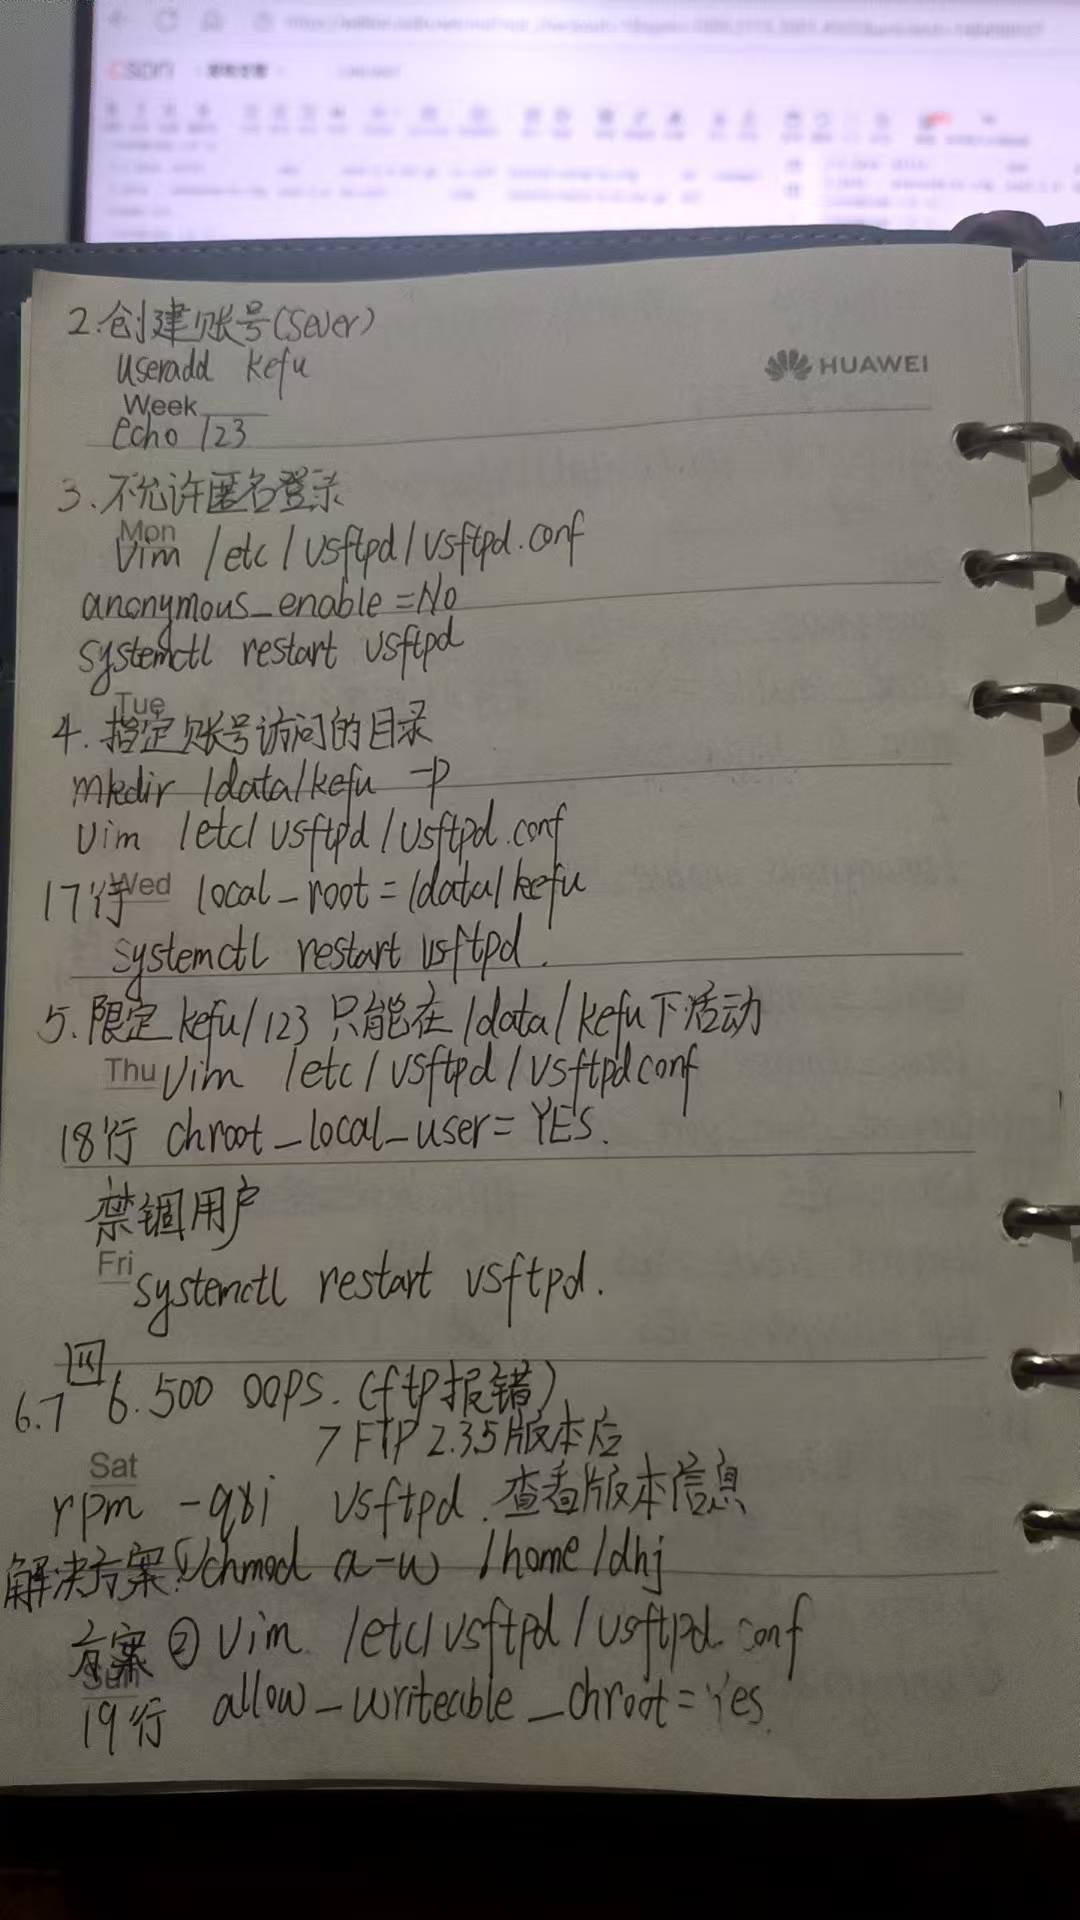 CSDN
2.创建账号(Sever)
useradd kefu
HUAWEI
Week
echo 123
3.不允许匿名登录
Mon
Vim /etc/vsftpd/vsftpd.conf
anonymous_enable=No
systemctl restart vsftpd
Tue
4.指定账号访问的目录
mkdir /data/kefu -p
Vim /etc/vsftpd/vsftpd.conf
Wed
17行 local_root=/data/kefu
systemctl restart vsftpd.
5.限定kefu/123只能在/data/kefu下活动
Thu
Vim /etc/vsftpd/vsftpdconf
18行 chroot_local_user=YES.
禁锢用户
Fri
systemctl restart vsftpd.
四
6.7 6.500 OOPS.(ftp报错)
7 FTP 2.3.5版本后
Sat
rpm -qi vsftpd.查看版本信息
解决方案:①chmod a-w /home/dhj
方案②Vim /etc/vsftpd/vsftpd.conf
Sun
19行 allow_writeable_chroot=Yes.